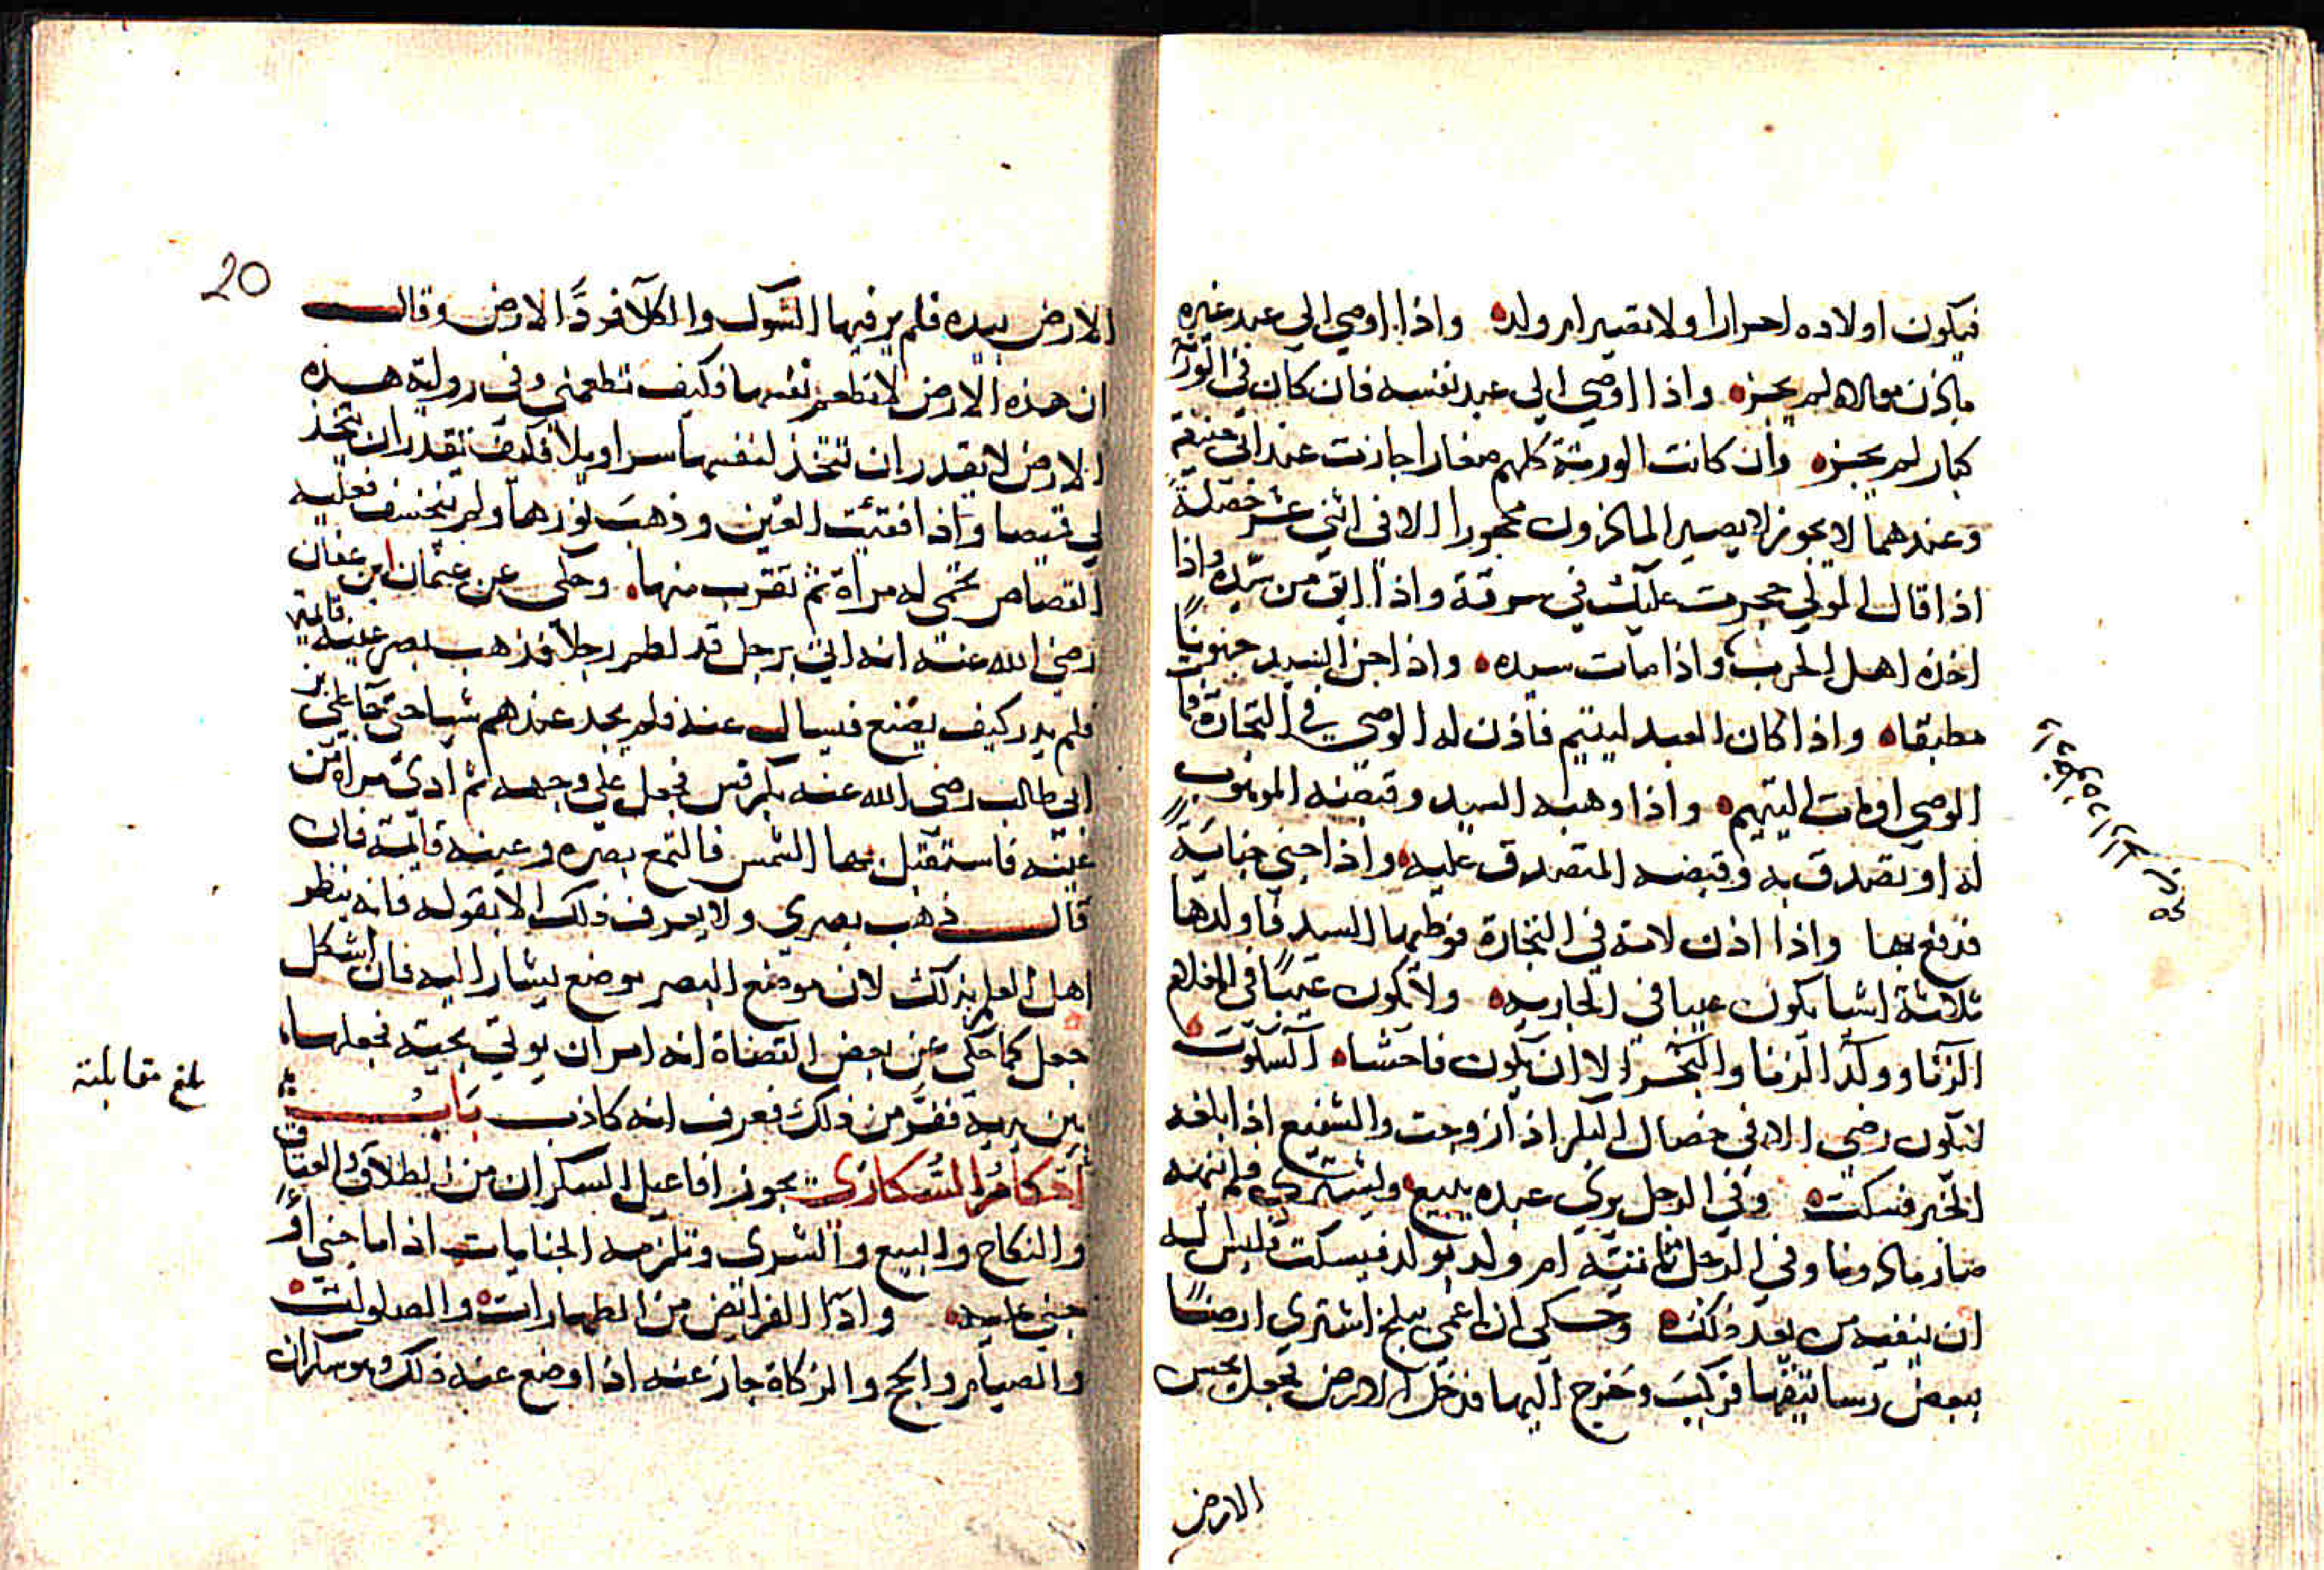 فيكون اولاده احرارا ولا تصير ام ولده واذا اوصي الي عبد غيره
باذن مولاه لم يجزه واذا اوصي الي عبد نفسه فان كان في الورثة
كبار لم يجزه وان كانت الورثة كلهم صغارا جازت عند ابي حنيفة
وعندهما لا يجوز لا يصير الماذون محجورا الا في اثني عشر خصلة
اذا قال المولي حجرت عليك في سوقه واذا ابق من سيده واذا
اخذه اهل الحرب واذا مات سيده واذا جن السيد جنونا
مطبقا واذا كان العبد ليتيم فاذن له الوصي في التجارة فمات
الوصي او مات اليتيم واذا وهبه السيد وقبضه الموهوب
له او تصدق به وقبضه المتصدق عليه واذا جني جناية
فدفع بها واذا اذن لامة في التجارة فوطيها السيد فاولدها
ثلاثة اشيا يكون عيبا في الجارية ولا يكون عيبا في الغلام
الزنا وولد الزنا والبخر الا ان يكون فاحشا السكوت
لا يكون رضي الا في خصال البكر اذا زوجت والشفيع اذا بلغه
الخبر فسكت وفي الرجل يري عبده يبيع ويشتري فلم ينهه
صار ماذونا وفي الرجل تاتيه ام ولد بولد فيسكت فليس له
ان ينفيه من بعد ذلك وحكي ان اعمي ببلخ اشتري ارضا
ببعض رساتيقها فركب وخرج اليها فدخل الارض فجعل يحس
الارض
20
الارض بيده فلم ير فيها الشوك والكلا فرد الارض وقال
ان هذه الارض لا تطعم نفسها فكيف تطعمني وفي رواية هذه
الارض لا تقدر ان تتخذ لنفسها سراويلا فكيف تقدر ان تتخذ
لي قميصا واذا فقئت العين وذهب نورها ولم تنخسف فعليه
القصاص تحمي له مراة ثم تقرب منها وحكي عن عثمان ابن عفان
رضي الله عنه انه اتي برجل قد لطم رجلا فذهب بصر عينه قائمة
فلم يدر كيف يصنع فسال عنه فلم يجد عندهم شيا حتي جا علي بن
ابي طالب رضي الله عنه بكرفس فجعل علي وجهه ثم ادني مراة من
عينه فاستقبل بها الشمس فالتمع بصره وعينه قائمة فان
قال ذهب بصري ولا يعرف ذلك الا بقوله فانه ينظر
اهل العلم بذلك لان موضع البصر موضع يشار اليه فان اشكل
جعل كما حكي عن بعض القضاة انه امر ان يوتي بحية فجعلها
بين يديه ففر من ذلك فعرف انه كاذب باب
بلغ مقابلته
احكام السكاري يجوز افاعيل السكران من الطلاق والعتاق
والنكاح والبيع والشري وتلزمه الجنايات اذا ما جني او
جني عليه وادا الفرائض من الطهارات والصلوات
والصيام والحج والزكاة جاز عنه اذا وضع عنه ذلك وهو سكران